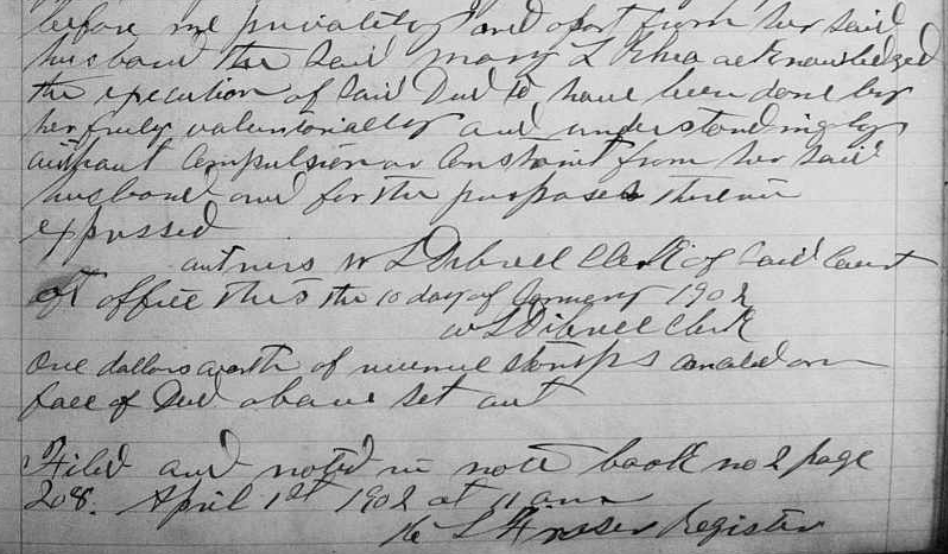 before me privately and apart from her said
husband the said Mary L Rhea acknowledged
the execution of said Deed to have been done by
her freely voluntarially and understandingly
without Compulsion or Constraint from her said
husband and for the purposes therein
expressed
witness W L Dibrell Clerk of said Court
at office this the 10 day of January 1902
W L Dibrell Clerk
One dollars worth of revenue stamps canceled on
face of Deed above set out
Filed and noted in note book no 2 page
208. April 1st 1902 at 11 am
L Register